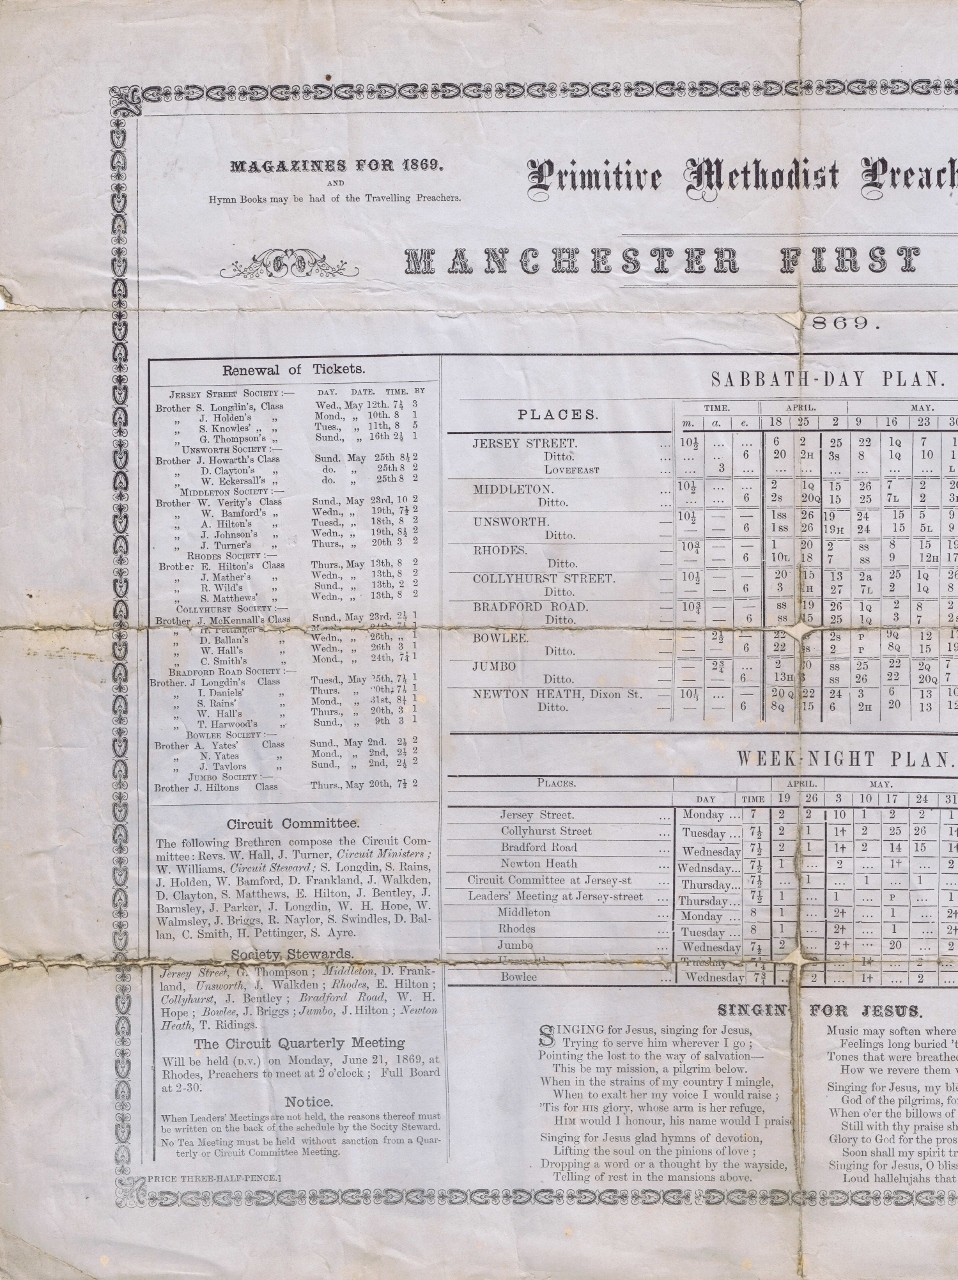 MAGAZINES FOR 1869.
AND
Hymn Books may be had of the Travelling Preachers.
Primitive Methodist Preach
MANCHESTER FIRST
869.
Renewal of Tickets.
JERSEY STREET SOCIETY:— DAY. DATE. TIME. BY
Brother S. Longdin's, Class Wed., May 12th. 7½ 3
„ J. Holden's „ Mond., „ 10th. 8 1
„ S. Knowles' „ „ Tues., „ 11th, 8 5
„ G. Thompson's „ Sund., „ 16th 2½ 1
UNSWORTH SOCIETY:—
Brother J. Howarth's Class Sund. May 25th 8½ 2
„ D. Clayton's „ do. „ 25th 8 2
„ W. Eckersall's „ do. „ 25th 8 2
MIDDLETON SOCIETY:—
Brother W. Verity's Class Sund., May 23rd, 10 2
„ W. Bamford's „ Wedn., „ 19th, 7½ 2
„ A. Hilton's „ Tuesd., „ 18th, 8 2
„ J. Johnson's „ Wedn., „ 19th, 8½ 2
„ J. Turner's „ Thurs., „ 20th 3 2
RHODES SOCIETY:—
Brother E. Hilton's Class Thurs., May 13th, 8 2
„ J. Mather's „ Wedn., „ 13th, 8 2
„ R. Wild's „ Sund., „ 13th, 2 2
„ S. Matthews' „ Wedn., „ 13th, 8 2
COLLYHURST SOCIETY:—
Brother J. McKennall's Class Sund., May 23rd, 2½ 1
„ H. Pettinger's „
„ D. Ballan's „ Wedn., „ 26th, „ 1
„ W. Hall's „ Wedn., „ 26th 3 1
„ C. Smith's „ Mond., „ 24th, 7½ 1
BRADFORD ROAD SOCIETY:—
Brother. J Longdin's Class Tuesd., May 25th, 7½ 1
„ I. Daniels' „ Thurs. „ 0th, 7½ 1
„ S. Rains' „ Mond., „ 31st, 8½ 1
„ W. Hall's „ Thurs., „ 20th, 3 1
„ T. Harwood's „ Sund., „ 9th 3 1
BOWLEE SOCIETY:—
Brother A. Yates' Class Sund., May 2nd. 2½ 2
„ N. Yates „ Mond., „ 2nd, 2½ 2
„ J. Taylors „ Sund., „ 2nd, 2½ 2
JUMBO SOCIETY:—
Brother J. Hiltons Class Thurs., May 20th, 7½ 2
Circuit Committee.
The following Brethren compose the Circuit Com-
mittee: Revs. W. Hall, J. Turner, Circuit Ministers;
W. Williams, Circuit Steward; S. Longdin, S. Rains,
J. Holden, W. Bamford, D. Frankland, J. Walkden,
D. Clayton, S. Matthews, E. Hilton, J. Bentley, J.
Barnsley, J. Parker, J. Longdin, W. H. Hope, W.
Walmsley, J. Briggs, R. Naylor, S. Swindles, D. Bal-
lan, C. Smith, H. Pettinger, S. Ayre.
Society Stewards.
Jersey Street, G. Thompson; Middleton, D. Frank-
land, Unsworth, J. Walkden; Rhodes, E. Hilton;
Collyhurst, J. Bentley; Bradford Road, W. H.
Hope; Bowlee, J. Briggs; Jumbo, J. Hilton; Newton
Heath, T. Ridings.
The Circuit Quarterly Meeting
Will be held (D.V.) on Monday, June 21, 1869, at
Rhodes, Preachers to meet at 2 o'clock; Full Board
at 2-30.
Notice.
When Leaders' Meetings are not held, the reasons thereof must
be written on the back of the schedule by the Socity Steward.
No Tea Meeting must be held without sanction from a Quar-
terly or Circuit Committee Meeting.
PRICE THREE-HALF-PENCE.]
SABBATH-DAY PLAN.
PLACES. TIME. APRIL. MAY.
m. a. e. 18 25 2 9 16 23 30
JERSEY STREET. ... 10½ ... ... 6 2 25 22 1Q 7 1
Ditto. ... ... ... 6 20 2H 3s 8 1Q 10 1
LOVEFEAST ... ... 3 ... ... ... ... ... ... ... L
MIDDLETON. ... 10½ — — 2 1Q 15 26 7 2 20
Ditto. ... — — 6 2s 20Q 15 25 7L 2 3
UNSWORTH. — 10½ — — 1ss 26 19 24 15 5 9
Ditto. — — — 6 1ss 26 19H 24 15 5L 9
RHODES. 10¾ — — 1 20 2 ss 8 15 19
Ditto. — — — 6 10L 18 7 ss 9 12H 17
COLLYHURST STREET. — 10½ — — 20 15 13 2a 25 1Q 26
Ditto. — — — 6 3 H 27 7L 2 1Q 8
BRADFORD ROAD. — 10¾ — — ss 19 26 1Q 2 8 2
Ditto. — — — 6 ss 15 25 1Q 3 7 2
BOWLEE. — — 2½ — 22 2s P 9Q 12 1
Ditto. — — — 6 22 s 2 P 8Q 15 19
JUMBO — — 2¾ — 2 0 ss 25 22 2Q 7
Ditto. — — — 6 13H ss 26 22 20Q 7
NEWTON HEATH, Dixon St. — 10½ ... — 20Q 22 24 3 6 13 10
Ditto. — — — 6 8Q 15 6 2H 20 13 12
WEEK-NIGHT PLAN.
PLACES. APRIL. MAY.
DAY TIME 19 26 3 10 17 24 31
Jersey Street. ... Monday ... 7 2 2 10 1 2 2 1
Collyhurst Street ... Tuesday ... 7½ 2 1 1† 2 25 26 1†
Bradford Road ... Wednesday 7½ 2 1 1† 2 14 15 1†
Newton Heath ... Wednsday... 7½ 1 ... 2 ... 1† ... ...
Circuit Committee at Jersey-st ... Thursday... 7½ ... 1 ... 1 ... 1 ...
Leaders' Meeting at Jersey-street ... Thursday... 7½ 1 ... 1 ... P ... 1
Middleton ... Monday ... 8 1 ... 2† ... 1 ... 2†
Rhodes ... Tuesday ... 8 1 ... 2† ... 1 ... 2†
Jumbo ... Wednesday 7½ 2 ... 2† ... 20 ... 2
Tuesday ...
Bowlee ... Wednesday 7¾ 2 ... 1† ... 2 ...
SINGING FOR JESUS.
SINGING for Jesus, singing for Jesus,
Trying to serve him wherever I go;
Pointing the lost to the way of salvation—
This be my mission, a pilgrim below.
When in the strains of my country I mingle,
When to exalt her my voice I would raise;
'Tis for HIS glory, whose arm is her refuge,
HIM would I honour, his name would I praise
Singing for Jesus glad hymns of devotion,
Lifting the soul on the pinions of love;
Dropping a word or a thought by the wayside,
Telling of rest in the mansions above.
Music may soften where
Feelings long buried 't
Tones that were breathe
How we revere them
Singing for Jesus, my ble
God of the pilgrims, fo
When o'er the billows of
Still with thy praise sh
Glory to God for the pros
Soon shall my spirit tr
Singing for Jesus, O bliss
Loud hallelujahs that